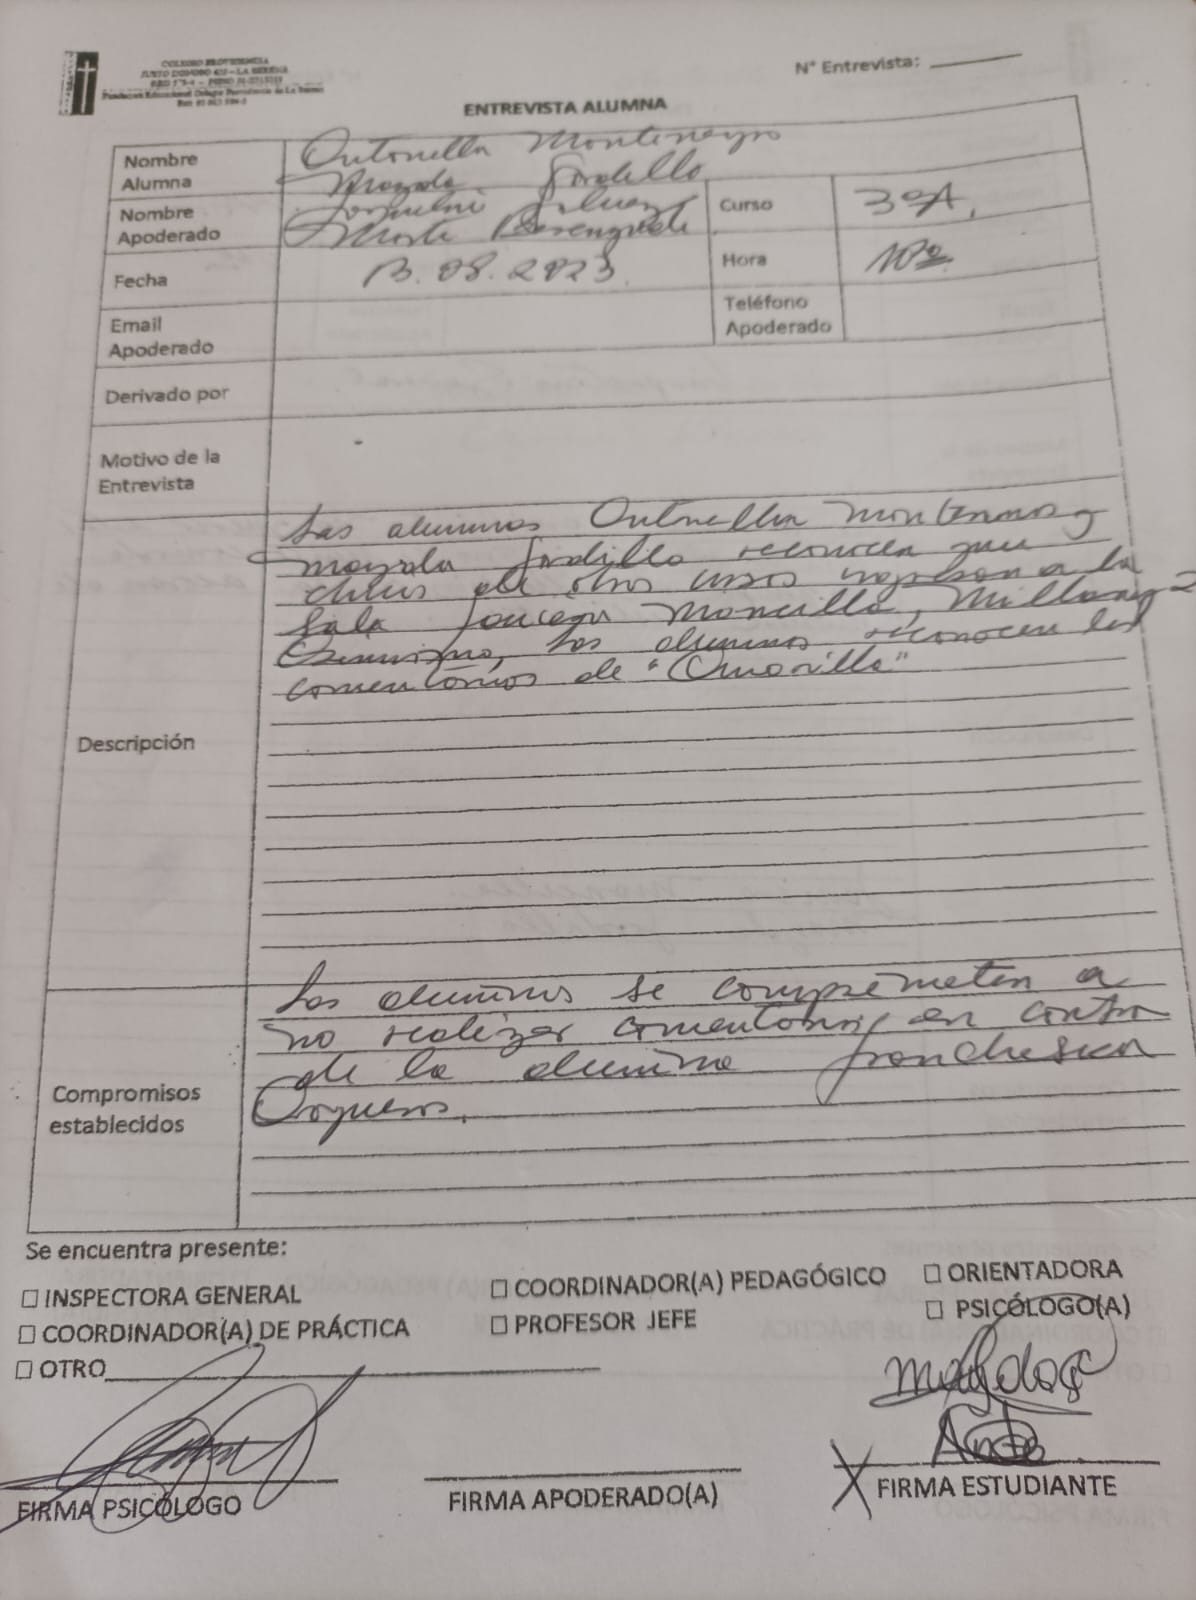 COLEGIO PROVIDENCIA
JUSTO DONOSO 420 – LA SERENA
Fundación Educacional Colegio Providencia de La Serena
N° Entrevista:
ENTREVISTA ALUMNA
Nombre Alumna
Antonella Montenegro
Magda Gordillo
Nombre Apoderado
Curso 3ºA.
Fecha 13.08.2023.
Hora 10º
Email Apoderado
Teléfono Apoderado
Derivado por
Motivo de la Entrevista
Descripción
Las alumnas Antonella Montenegro y
Magda Gordillo reconocen que
chicas de otro curso ingresan a la
sala Moncilla,
las alumnas reconocen los
comentarios de "
Compromisos establecidos
Las alumnas se comprometen a
no realizar comentarios en contra
de la alumna Franchesca
Se encuentra presente:
☐ INSPECTORA GENERAL ☐ COORDINADOR(A) PEDAGÓGICO ☐ ORIENTADORA
☐ COORDINADOR(A) DE PRÁCTICA ☐ PROFESOR JEFE ☐ PSICÓLOGO(A)
☐ OTRO
FIRMA PSICÓLOGO FIRMA APODERADO(A) FIRMA ESTUDIANTE